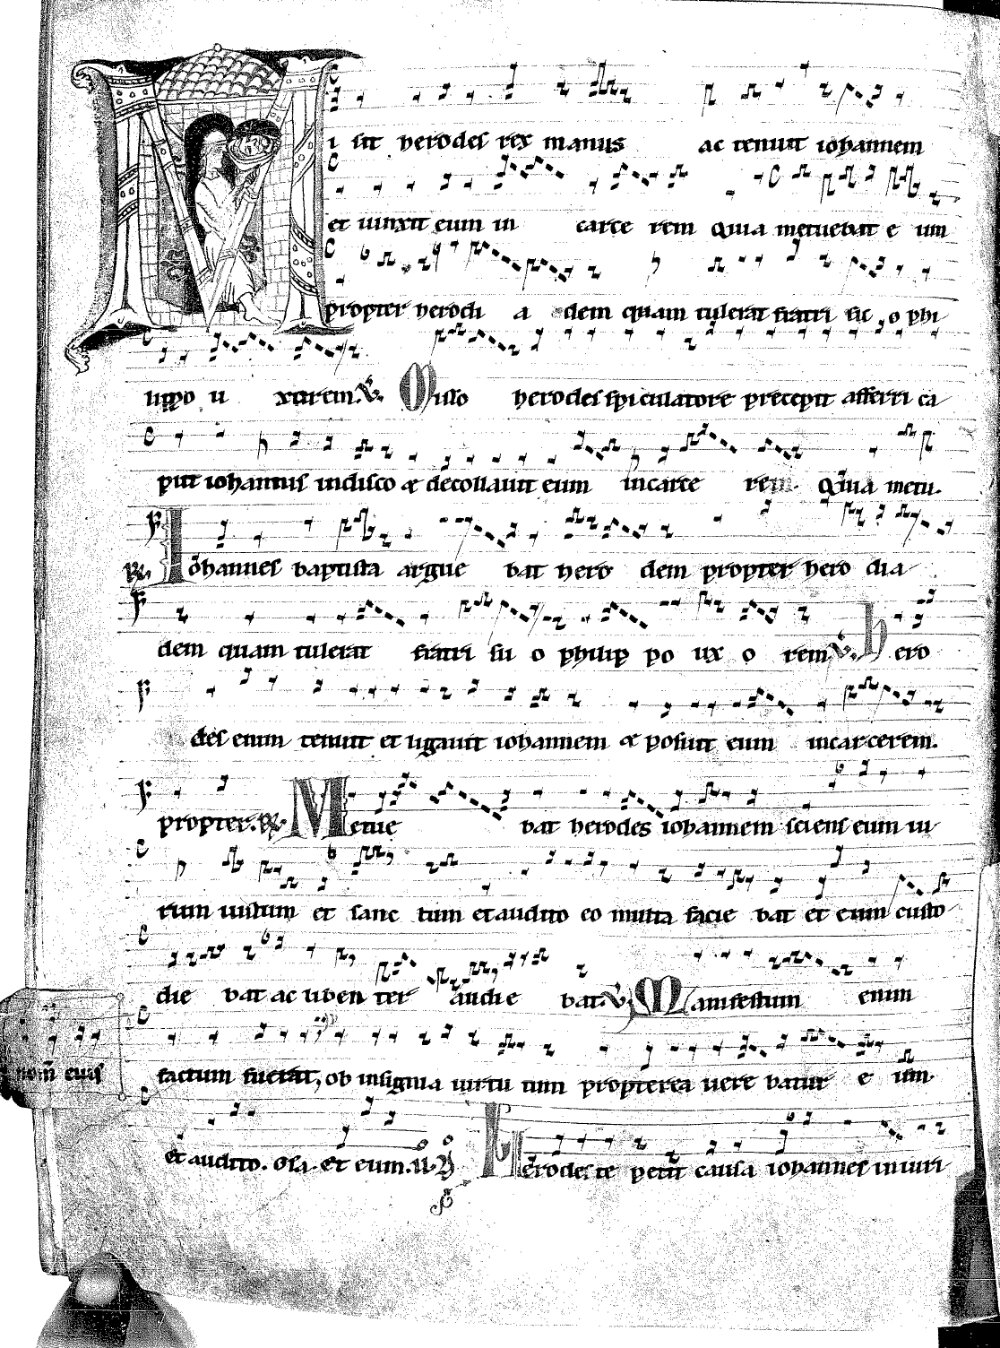 Misit herodes rex manus ac tenuit iohannem
et uinxit eum in carce rem Quia metuebat e um
propter herodi a dem quam tulerat fratri su o phi
lippo u xorem. V. Misso herodes spiculatore precepit afferri ca
put iohannis in disco & decollauit eum in carce rem. Quia metu.
R. Iohannes baptista argue bat hero dem propter hero dia
dem quam tulerat fratri su o philip po ux o rem. V. hero
des enim tenuit et ligauit iohannem & posuit eum in carcerem.
propter. R. Metue bat herodes iohannem sciens eum ui
rum iustum et sanc tum et audito eo multa facie bat et eum custo
die bat ac liben ter audie bat. V. Manifestum enim
nom eius
factum fuerat, ob insignia uirtu tum propterea uere batur e um.
et audito. et eum.
Herodes te petit causa iohannes in iuri